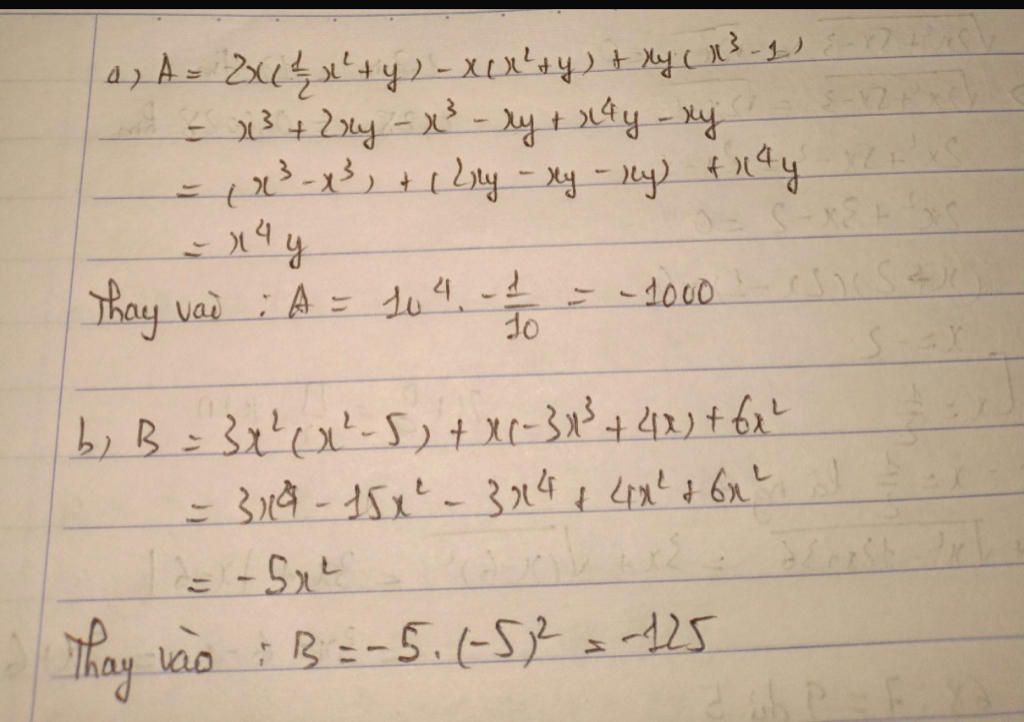 a) A = 2x(1/2 x² + y) - x(x² + y) + xy(x³ - 1)
= x³ + 2xy - x³ - xy + x⁴y - xy
= (x³ - x³) + (2xy - xy - xy) + x⁴y
= x⁴y
Thay vào : A = 10⁴ . -1/10 = -1000
b) B = 3x²(x² - 5) + x(-3x³ + 4x) + 6x²
= 3x⁴ - 15x² - 3x⁴ + 4x² + 6x²
= -5x²
Thay vào : B = -5 . (-5)² = -125